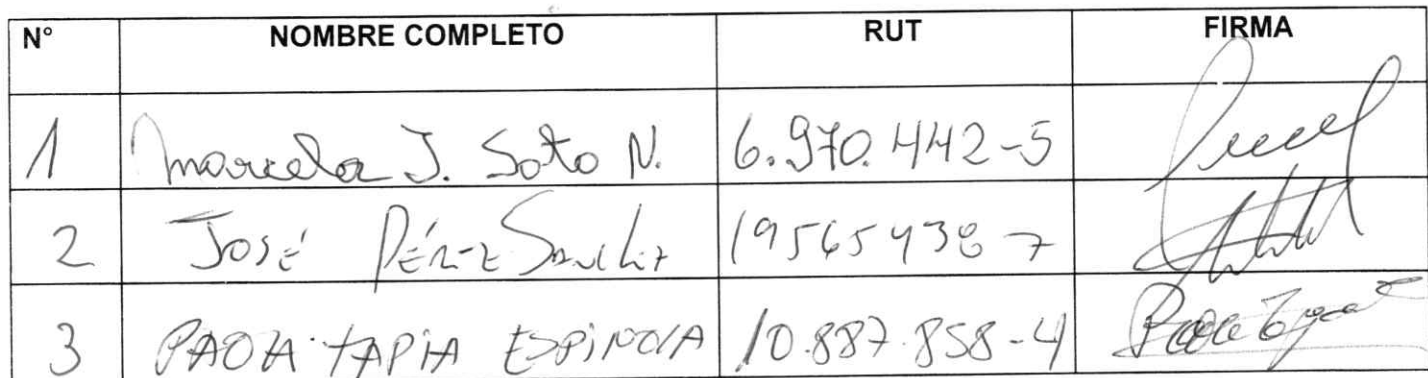 N° NOMBRE COMPLETO RUT FIRMA
1 Marcela J. Soto N. 6.970.442-5
2 José Pérez Sánchez 19565438-7
3 PAOLA TAPIA ESPINOZA 10.887.858-4